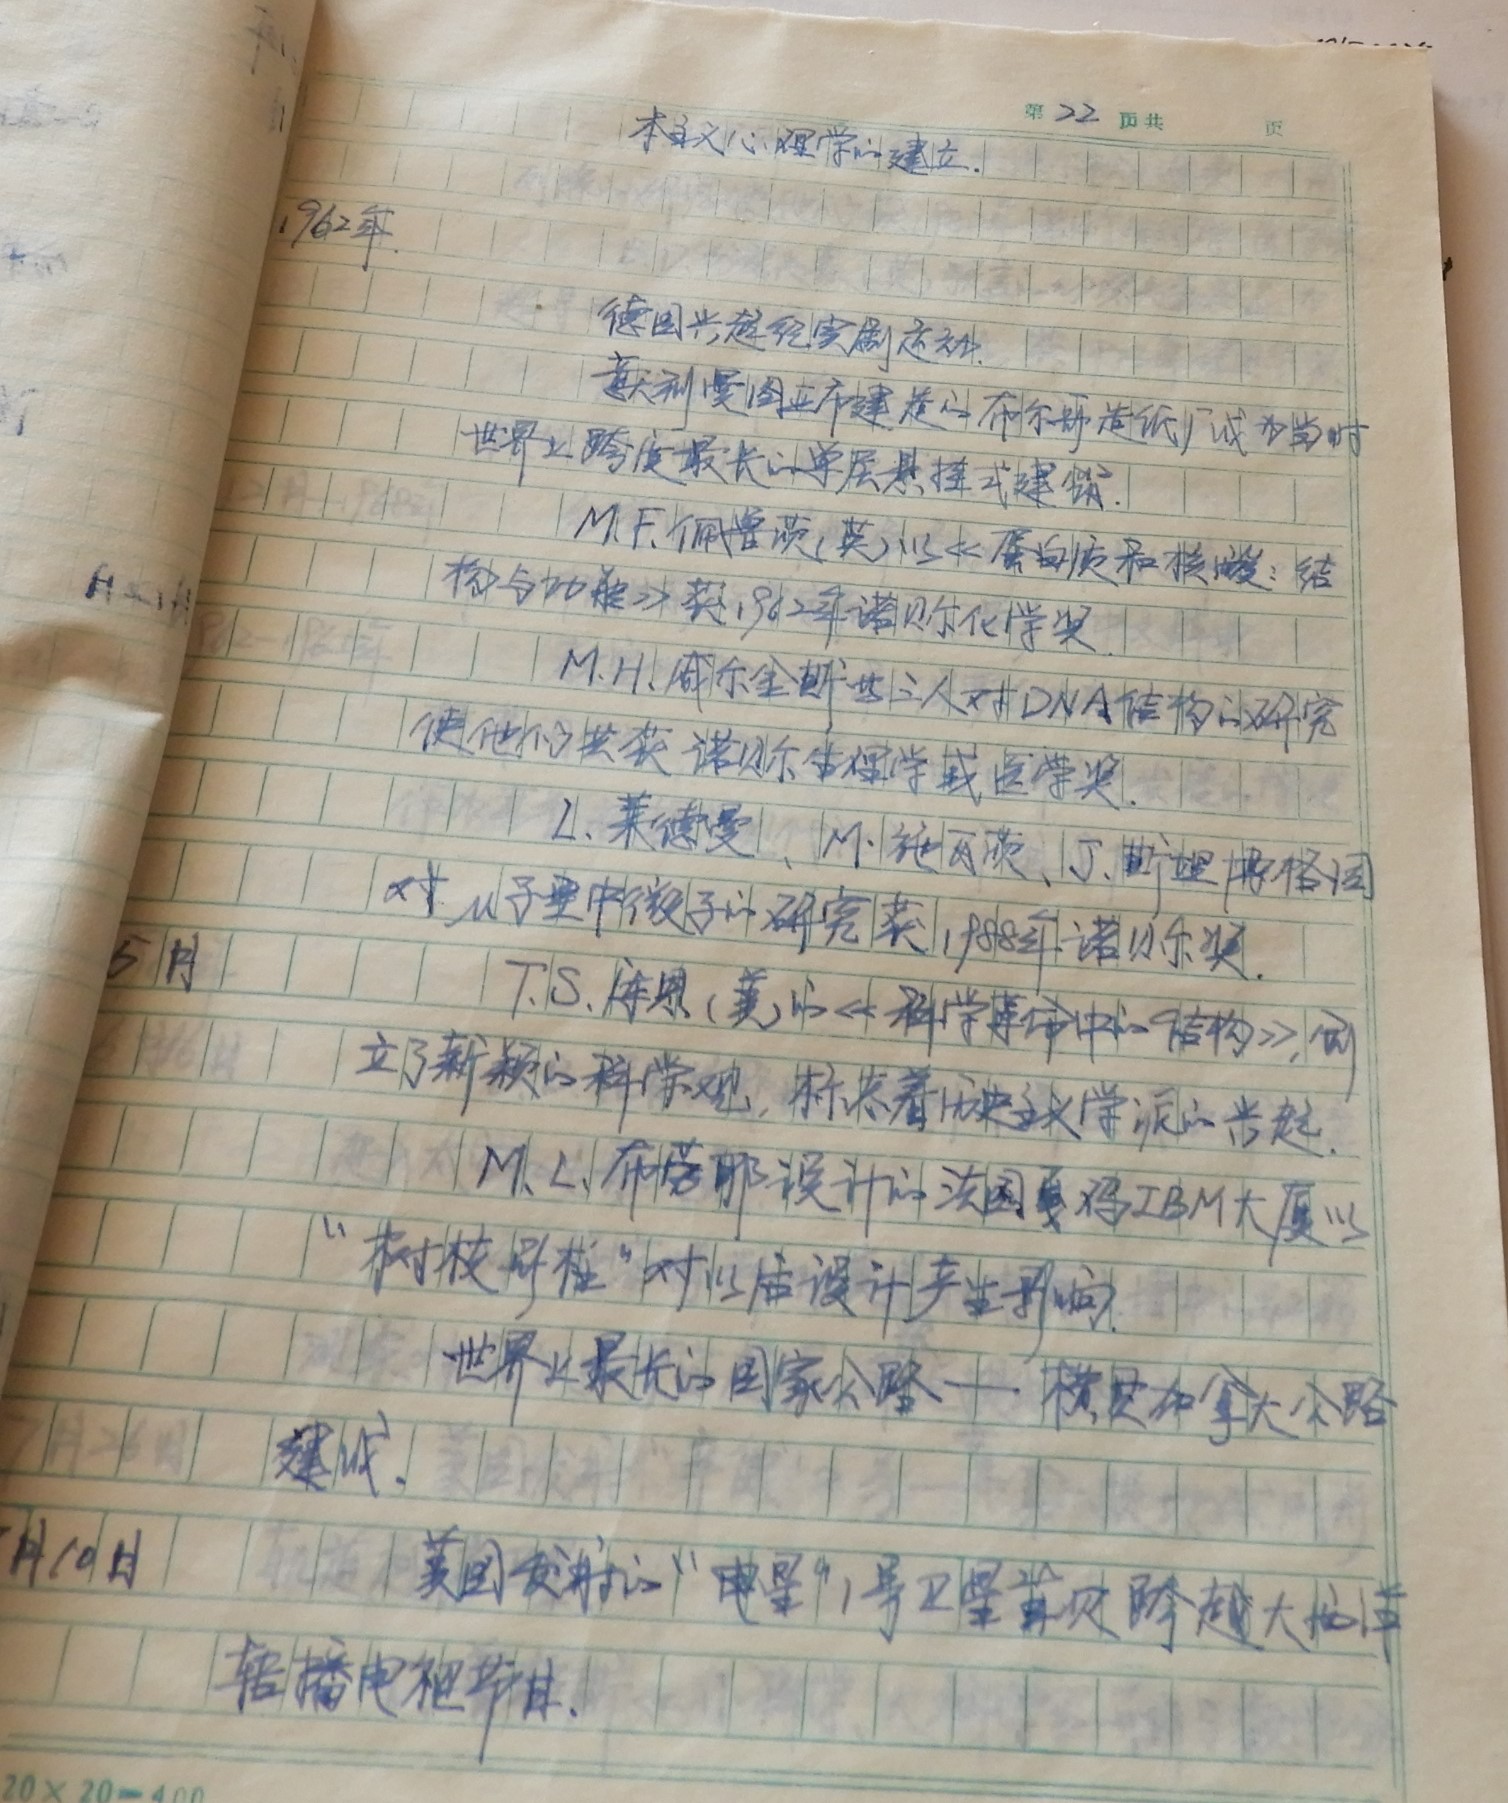 第22页共 页
本主义心理学的建立.
1962年.
德国兴起纪实剧运动.
意大利曼图亚布建造的布尔哥造纸厂成为当时
世界上跨度最长的单层悬挂式建筑.
M.F.佩鲁茨(英)以《蛋白质和核酸:结
构与功能》获1962年诺贝尔化学奖.
M.H.威尔金斯共三人对DNA结构的研究
使他们共获诺贝尔生理学或医学奖.
L.莱德曼、M.施瓦茨、J.斯坦博格因
对μ子型中微子的研究获1988年诺贝尔奖.
5月 T.S.库恩(美)的《科学革命中的结构》,创
立了新颖的科学观,标志着历史主义学派的兴起.
M.L.布劳耶设计的法国戛码IBM大厦以
“树枝形柱”对以后设计产生影响.
世界上最长的国家公路——横贯加拿大公路
建成.
月10日 美国发射的“电星”1号卫星首次跨越大西洋
转播电视节目.
20×20=400